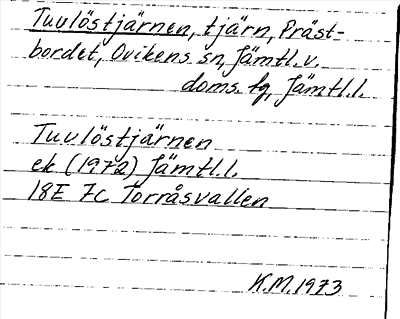 Tuvlöstjärnen, tjärn, Präst-
bordet, Ovikens sn, Jämtl.v.
doms. tg, Jämtl.l.
Tuvlöstjärnen
ek (1972) Jämtl.l.
18E 7C Torråsvallen
K.M. 1973